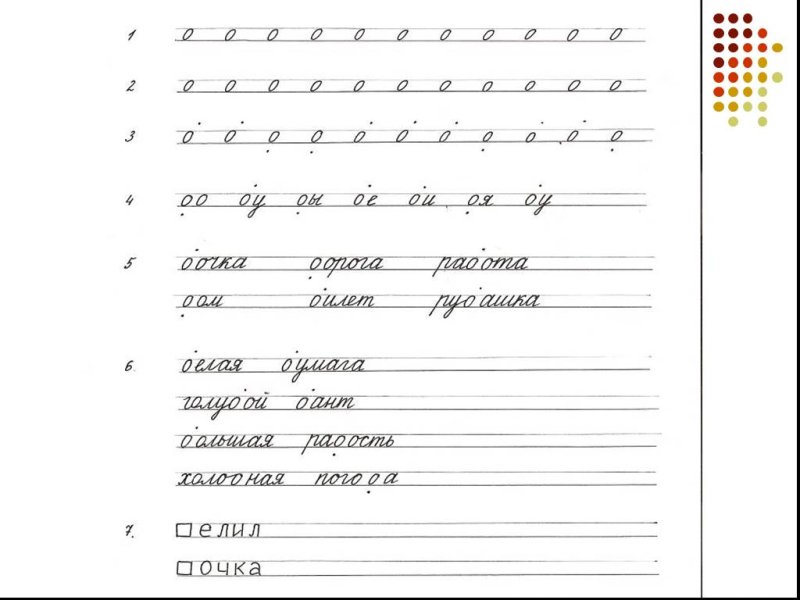 1 о о о о о о о о о о о
2 о о о о о о о о о о о
3 о о о о о о о о о о о
4 оо оу оы ое ои оя оу
5 оочка оорога раоота
оом оилет руоашка
6. оелая оумага
голуоой оант
оольшая раоость
холооная погооа
7. □елил
□очка